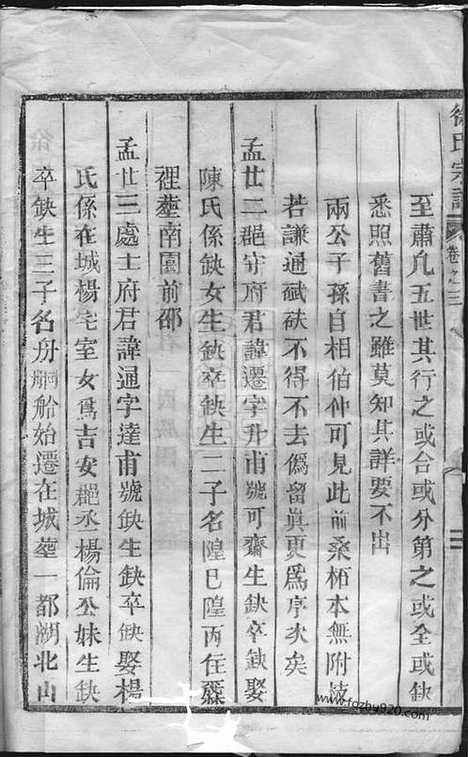 徐氏宗譜 卷之三 三
至蕭凡五世其行之或合或分第之或全或缺
悉照舊書之雖莫知其詳要不出
兩公子孫自相伯仲可見此前桑栢本無附枝
若謙通珷玞不得不去僞留眞更為序次矣
孟廿二郡守府君諱遷字升甫號可齋生缺卒缺娶
陳氏係缺女生缺卒缺生二子名隍巳隍丙住
裡塟南園前邵
孟廿三處士府君諱通字達甫號缺生缺卒缺娶楊
氏係在城楊宅室女爲吉安郡丞楊倫公妹生缺
卒缺生三子名舟船始遷在城塟一都湖北山
www.fgzby920.com